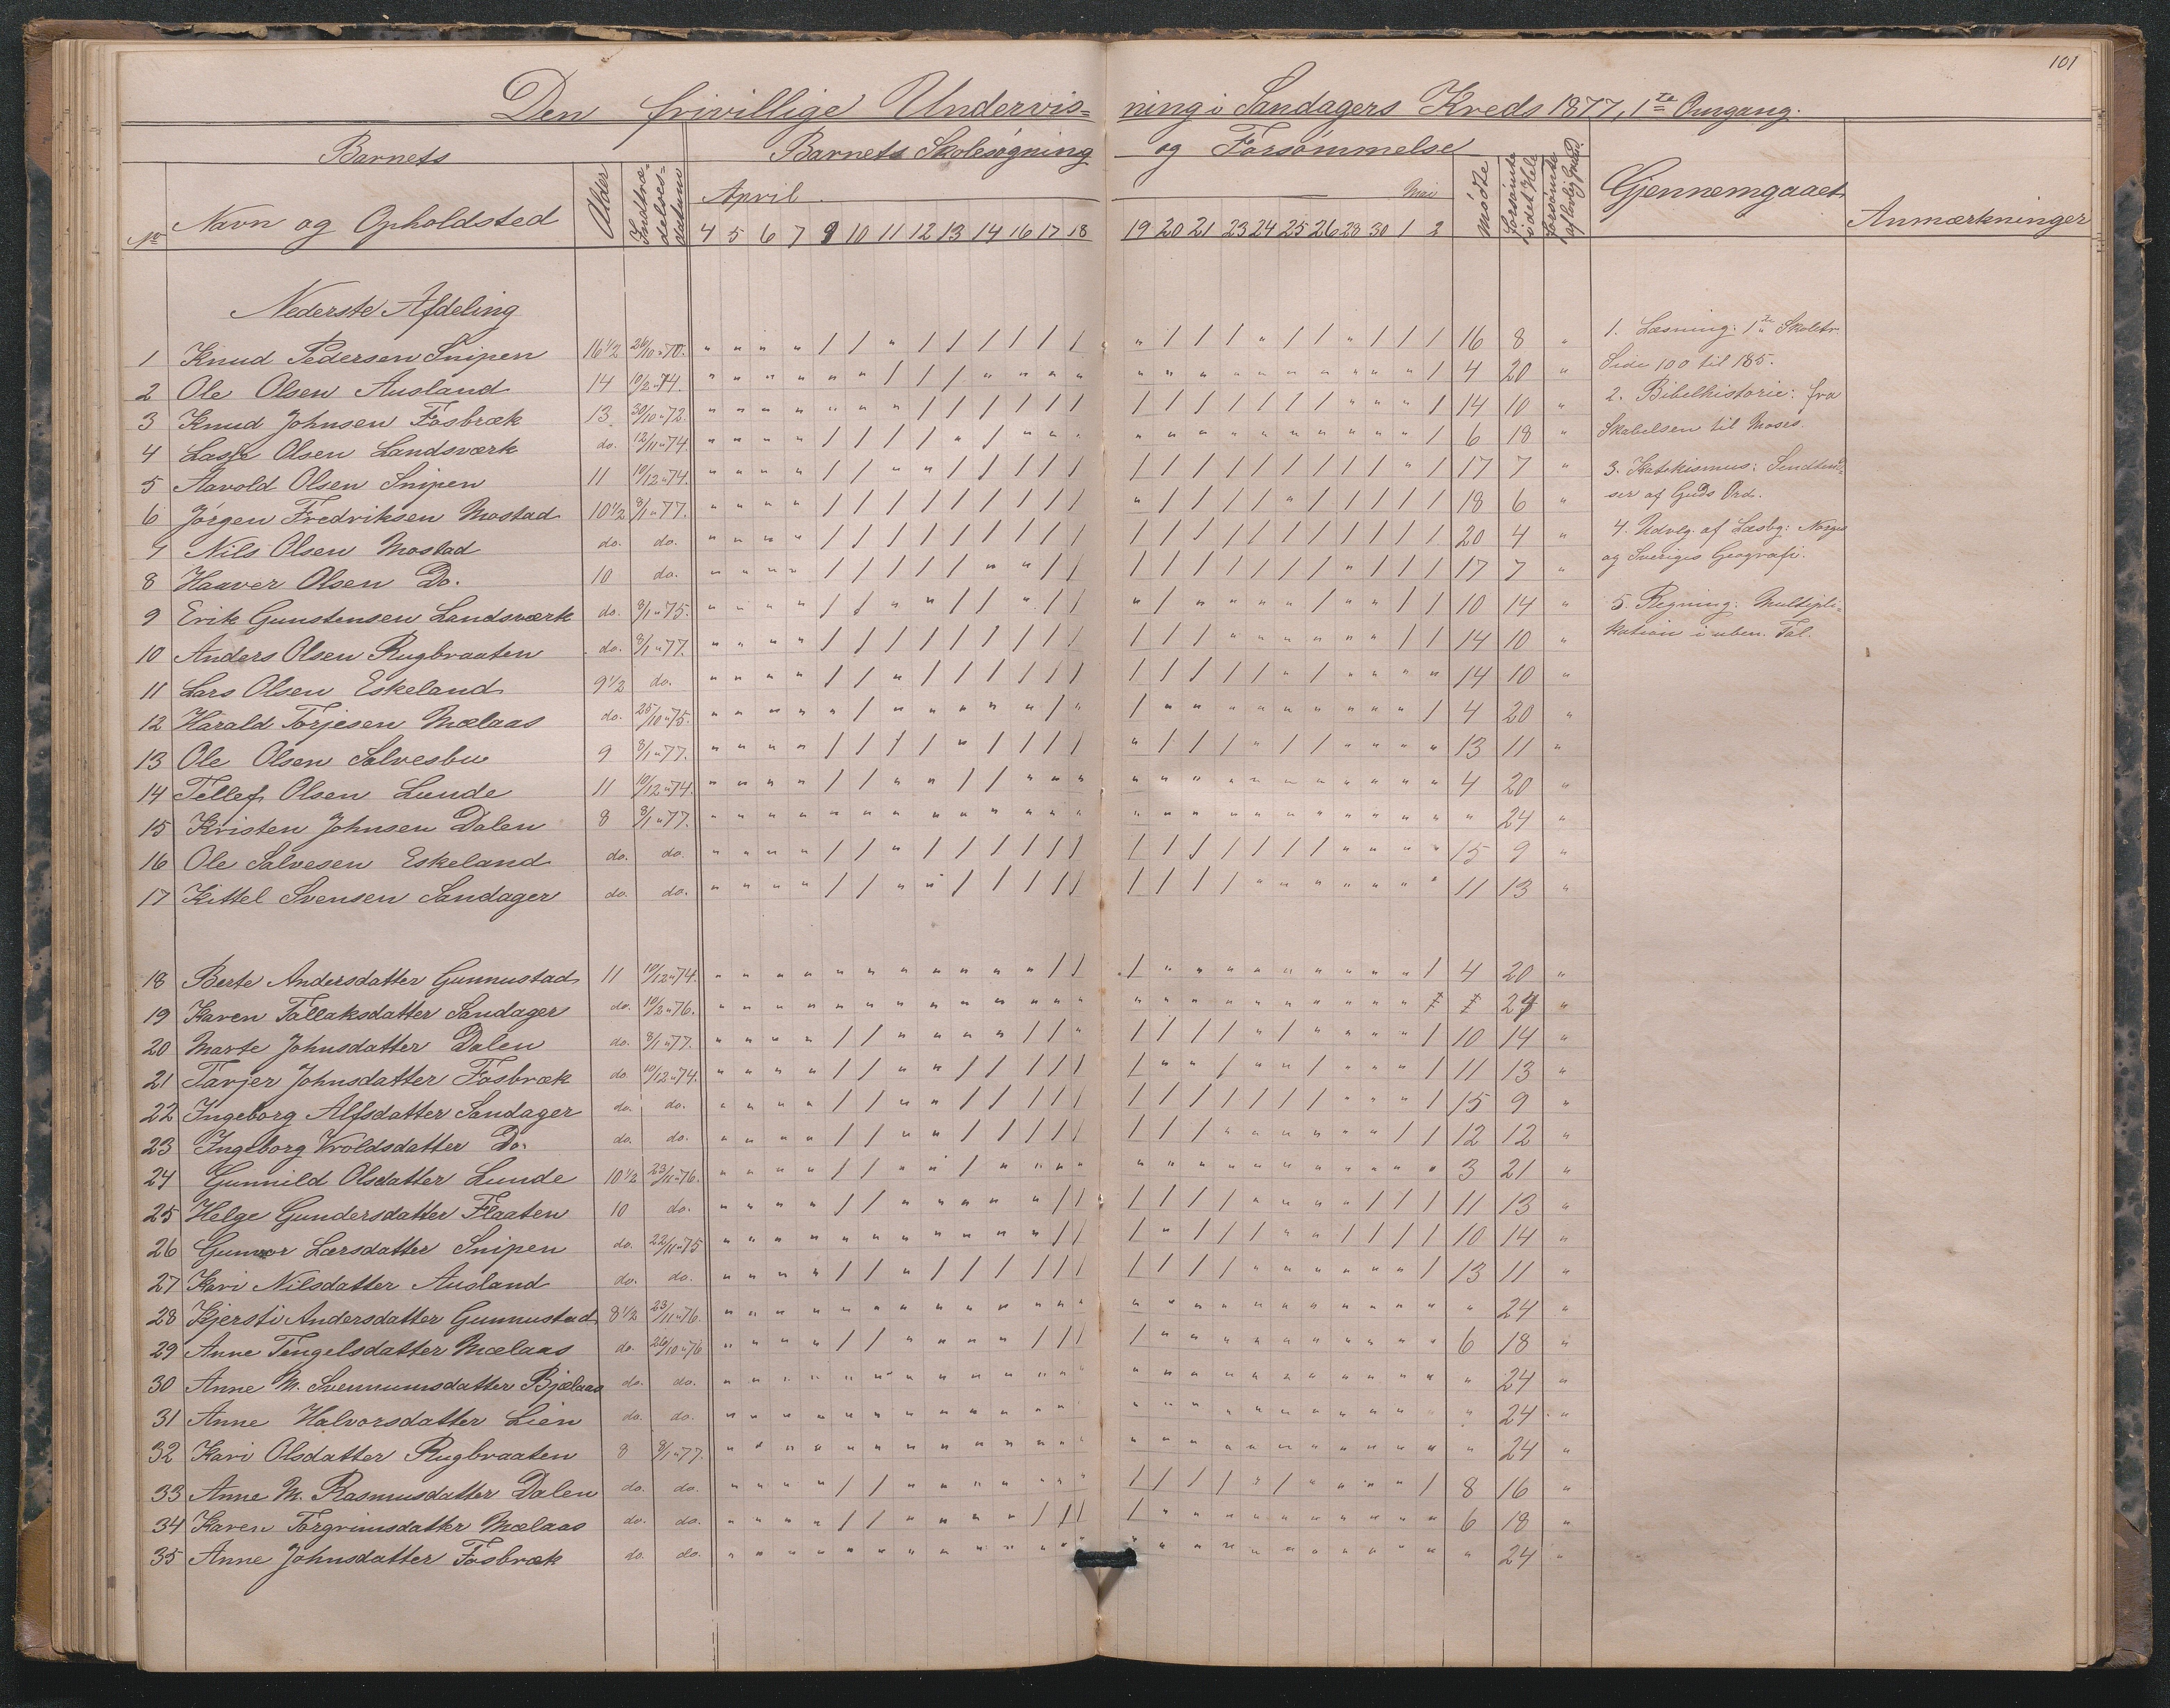 101
Den frivillige Undervis= ning i Sandagers Kreds 1877, 1ste Omgang.
Barnets Barnets Skolesøgning og Forsømmelse
No Navn og Opholdsted Alder Indtræ-delses-datum April Mai Mødte Forsømte i det Hele Forsømte af lovlig Grund Gjennemgaaet Anmærkninger
4 5 6 7 9 10 11 12 13 14 16 17 18 19 20 21 23 24 25 26 28 30 1 2
Nederste Afdeling
1 Knud Pedersen Snipen 16 1/2 24/10 " 70. " " " " / / " / / / / / / " / / / " / / " / / / 16 8 "
2 Ole Olsen Ausland 14 10/2 " 74. " " " " " " / / / " " " " " " " " " " " " " " / 4 20 "
3 Knud Johnsen Fosbræk 13 30/10 " 72. " " " " " " " / / / / / / / / / / / / / " " " / 14 10 "
4 Lasse Olsen Landsværk do. 12/11 " 74. " " " " / / / / " / " " " " " " " " " " " " " / 6 18 "
5 Aavold Olsen Snipen 11 10/12 " 74. " " " " / / " " / / / / / / / / / / / / / / " / 17 7 "
6 Jørgen Fredriksen Mostad 10 1/2 8/1 " 77. " " " " / / / / / / / / / " / / / " / / / / / / 18 6 "
7 Nils Olsen Mostad do. do. " " " " / / / / / / / / / / / / / / / / / / / / 20 4 "
8 Haaver Olsen Do. 10 do. " " " " / / / / / " " / / / / / / / / / " / / / 17 7 "
9 Erik Gunstensen Landsværk do. 8/1 " 75. " " " " / / " " / / " / / " / " " " " / " " / / 10 14 "
10 Anders Olsen Rugbraaten do. 8/1 " 77. " " " " / / / / / / / / / / / / " " " " " " / / 14 10 "
11 Lars Olsen Eskeland 9 1/2 do. " " " " / / " / / / / / / / / / / / " / " " " " 14 10 "
12 Harald Torjesen Mælaas do. 25/10 " 75. " " " " " / " " " " " / " / " " " " " " " " " / 4 20 "
13 Ole Olsen Salvesbu 9 8/1 " 77. " " " " / / / / " / / / / " / / / " / / " " " " 13 11 "
14 Tellef Olsen Lunde 11 10/12 " 74. " " " " / / " " / / " " " " " " " " " " " " " " 4 20 "
15 Kristen Johnsen Dalen 8 8/1 " 77. " " " " " " " " " " " " " " " " " " " " " " " " " 24 "
16 Ole Salvesen Eskeland do. do. " " " " / / " / / / / / / / / / / / / / " " " " 15 9 "
17 Kittel Svensen Sandager do. do. " " " " / / " " / / / / / / / / / " " " " " " " 11 13 "
18 Berte Andersdatter Gunnustad 11 10/12 " 74. " " " " " " " " " " " / / / " " " " " " " " " / 4 20 "
19 Karen Tallaksdatter Sandager do. 10/2 " 76. " " " " " " " " " " " " " " " " " " " " " " " 24 "
20 Marte Johnsdatter Dalen do. 8/1 " 77. " " " " / / " " " " / / " / / / / " / " " " " / 10 14 "
21 Tarjer Johnsdatter Fosbræk do. 10/12 " 74. " " " " / / " " / / / / / / " " / " " / " " " / 11 13 "
22 Ingeborg Alfsdatter Sandager do. do. " " " " / / " " / / / / / / / / / / / / " " " / 15 9 "
23 Ingeborg Vroldsdatter Do. do. do. " " " " / / " " / / / / / / / / " " " " " " / / 12 12 "
24 Gunnild Olsdatter Lunde 10 1/2 23/11 " 76. " " " " / / " " / " " " " " " " " " " " " " " " 3 21 "
25 Helge Gundersdatter Flaaten 10 do. " " " " / / " " " " " / / / / / / " " " " / / / 11 13 "
26 Gunvor Larsdatter Snipen do. 22/11 " 75 " " " " " " " " " " " / / / " / / / " " / / / / 10 14 "
27 Kari Nilsdatter Ausland do. do. " " " " / / " / / / / / / / / / / " " " " " " / 13 11 "
28 Kjersti Andersdatter Gunnustad 8 1/2 23/11 " 76. " " " " " " " " " " " " " " " " " " " " " " " " " 24 "
29 Anne Tengelsdatter Mælaas do. 26/10 " 76 " " " " / / " " " " / / / / " " " " " " " " " " 6 18 "
30 Anne M. Svennumsdatter Bjælaas do. do. " " " " " " " " " " " " " " " " " " " " " " " " " 24 "
31 Anne Halvorsdatter Lien do. do. " " " " " " " " " " " " " " " " " " " " " " " " " 24 "
32 Kari Olsdatter Rugbraaten 8 8/1 " 77. " " " " " " " " " " " " " " " " " " " " " " " " " 24 "
33 Anne M. Rasmusdatter Dalen do. do. " " " " / / " " " " " " " / / / / " / " " " " / 8 16 "
34 Karen Torgrimsdatter Mælaas do. do. " " " " / / " " " " / / / / " " " " " " " " " " 6 18 "
35 Anne Johnsdatter Fosbræk do. do. " " " " " " " " " " " " " " " " " " " " " " " " " 24 "
1. Læsning: 1ste Skoletr.
Side 100 til 185.
2. Bibelhistorie: fra
Skabelsen til Moses.
3. Katekismus:
ser af Guds Ord.
4. Udvlg. af Læsbg: Norges
og Sveriges Geografi.
5. Regning: Multipli-
kation i uben. Tal.